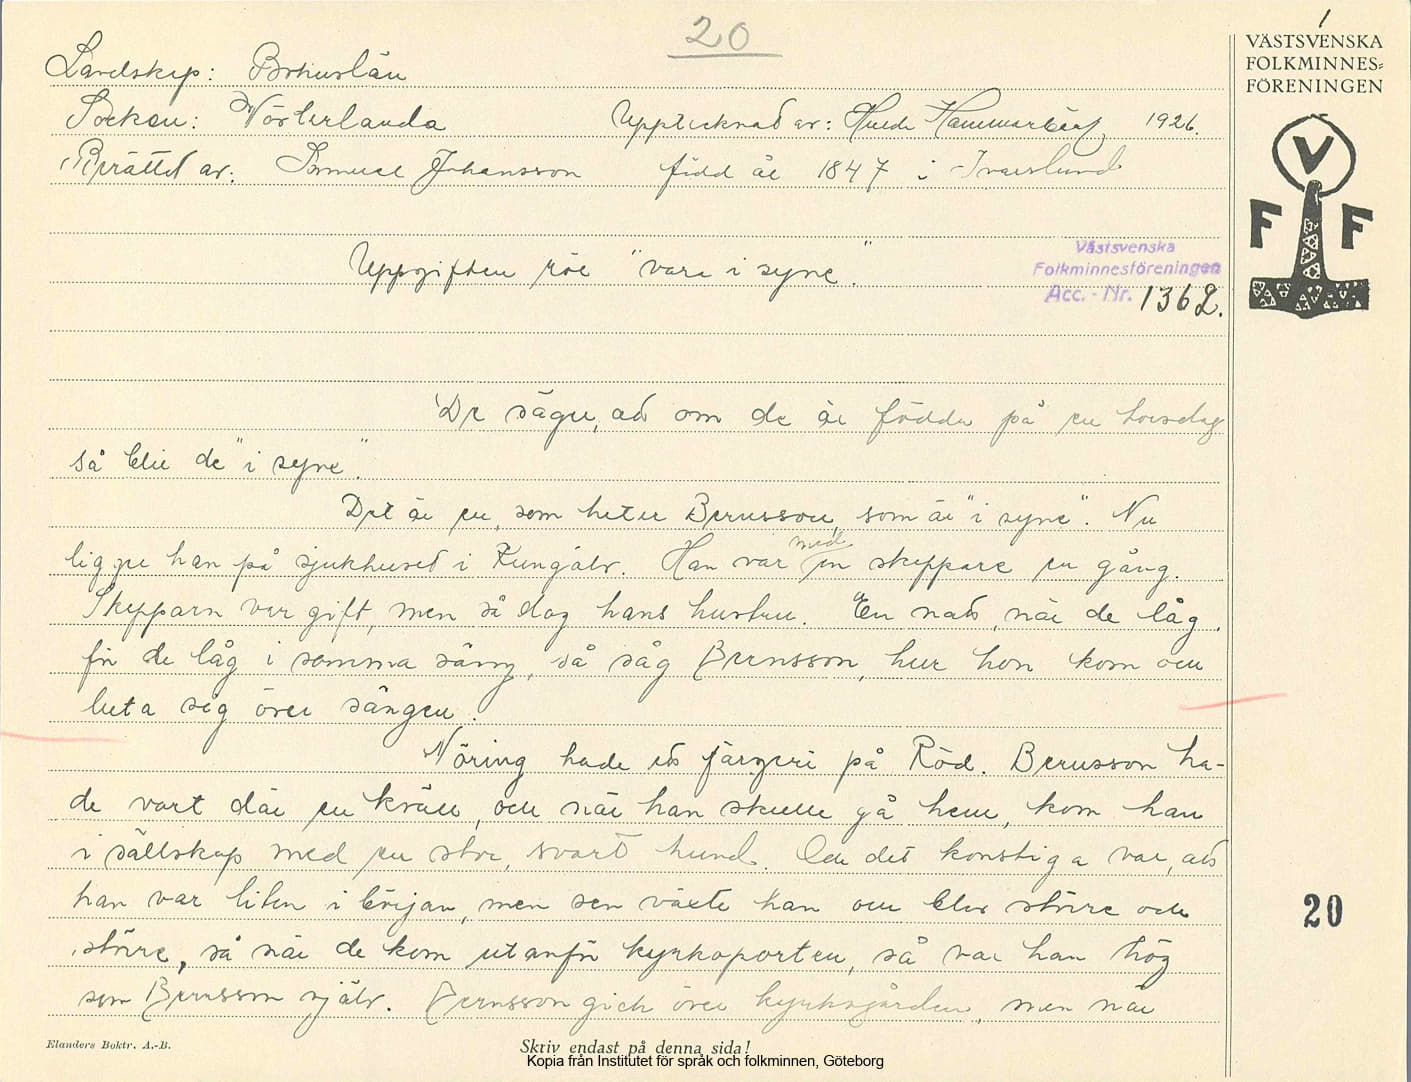 20
1
VÄSTSVENSKA
FOLKMINNES-
FÖRENINGEN
V
F F
Landskap: Bohuslän
Socken: Norderlanda Upptecknad av: Hulda Hammarbäck 1926.
Berättad av: Samuel Johansson född år 1847 i Ivarslund
Uppgiften rör "vara i syne".
Västsvenska
Folkminnesföreningen
Acc. - Nr. 1362.
De säger, ad om de är födda på en torsdag
så blir de "i syne".
Det är en, som heter Bernsson, som är "i syne". Nu
ligger han på sjukhused i Kungälv. Han var med en skeppare en gång.
Skepparn var gift, men så dog hans hustru. En nad, när de låg,
för de låg i samma säng, så såg Bernsson, hur hon kom och
luta sig över sängen.
Nöring hade ed färgeri på Röd. Bernsson ha-
de vart där en kväll, och när han skulle gå hem, kom han
i sällskap med en stor, svart hund. Och det konstiga var, ad
han var liten i början, men sen växte han och blev större och
större, så när de kom utanför kyrkoporten, så var han hög
som Bernsson själv. Bernsson gick över kyrkogården, men när
20
Elanders Boktr. A.-B.
Skriv endast på denna sida!
Kopia från Institutet för språk och folkminnen, Göteborg